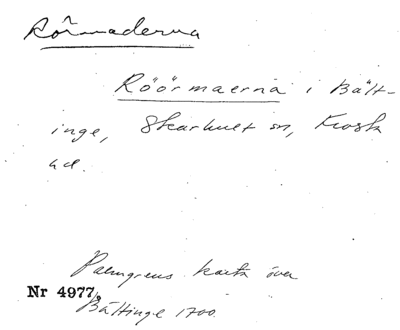 Rörmaderna
Röörmaerna i Bält-
inge, Skarhult sn, Frosta
hd.
Palmgrens karta över
Nr 4977.
Bältinge 1700.